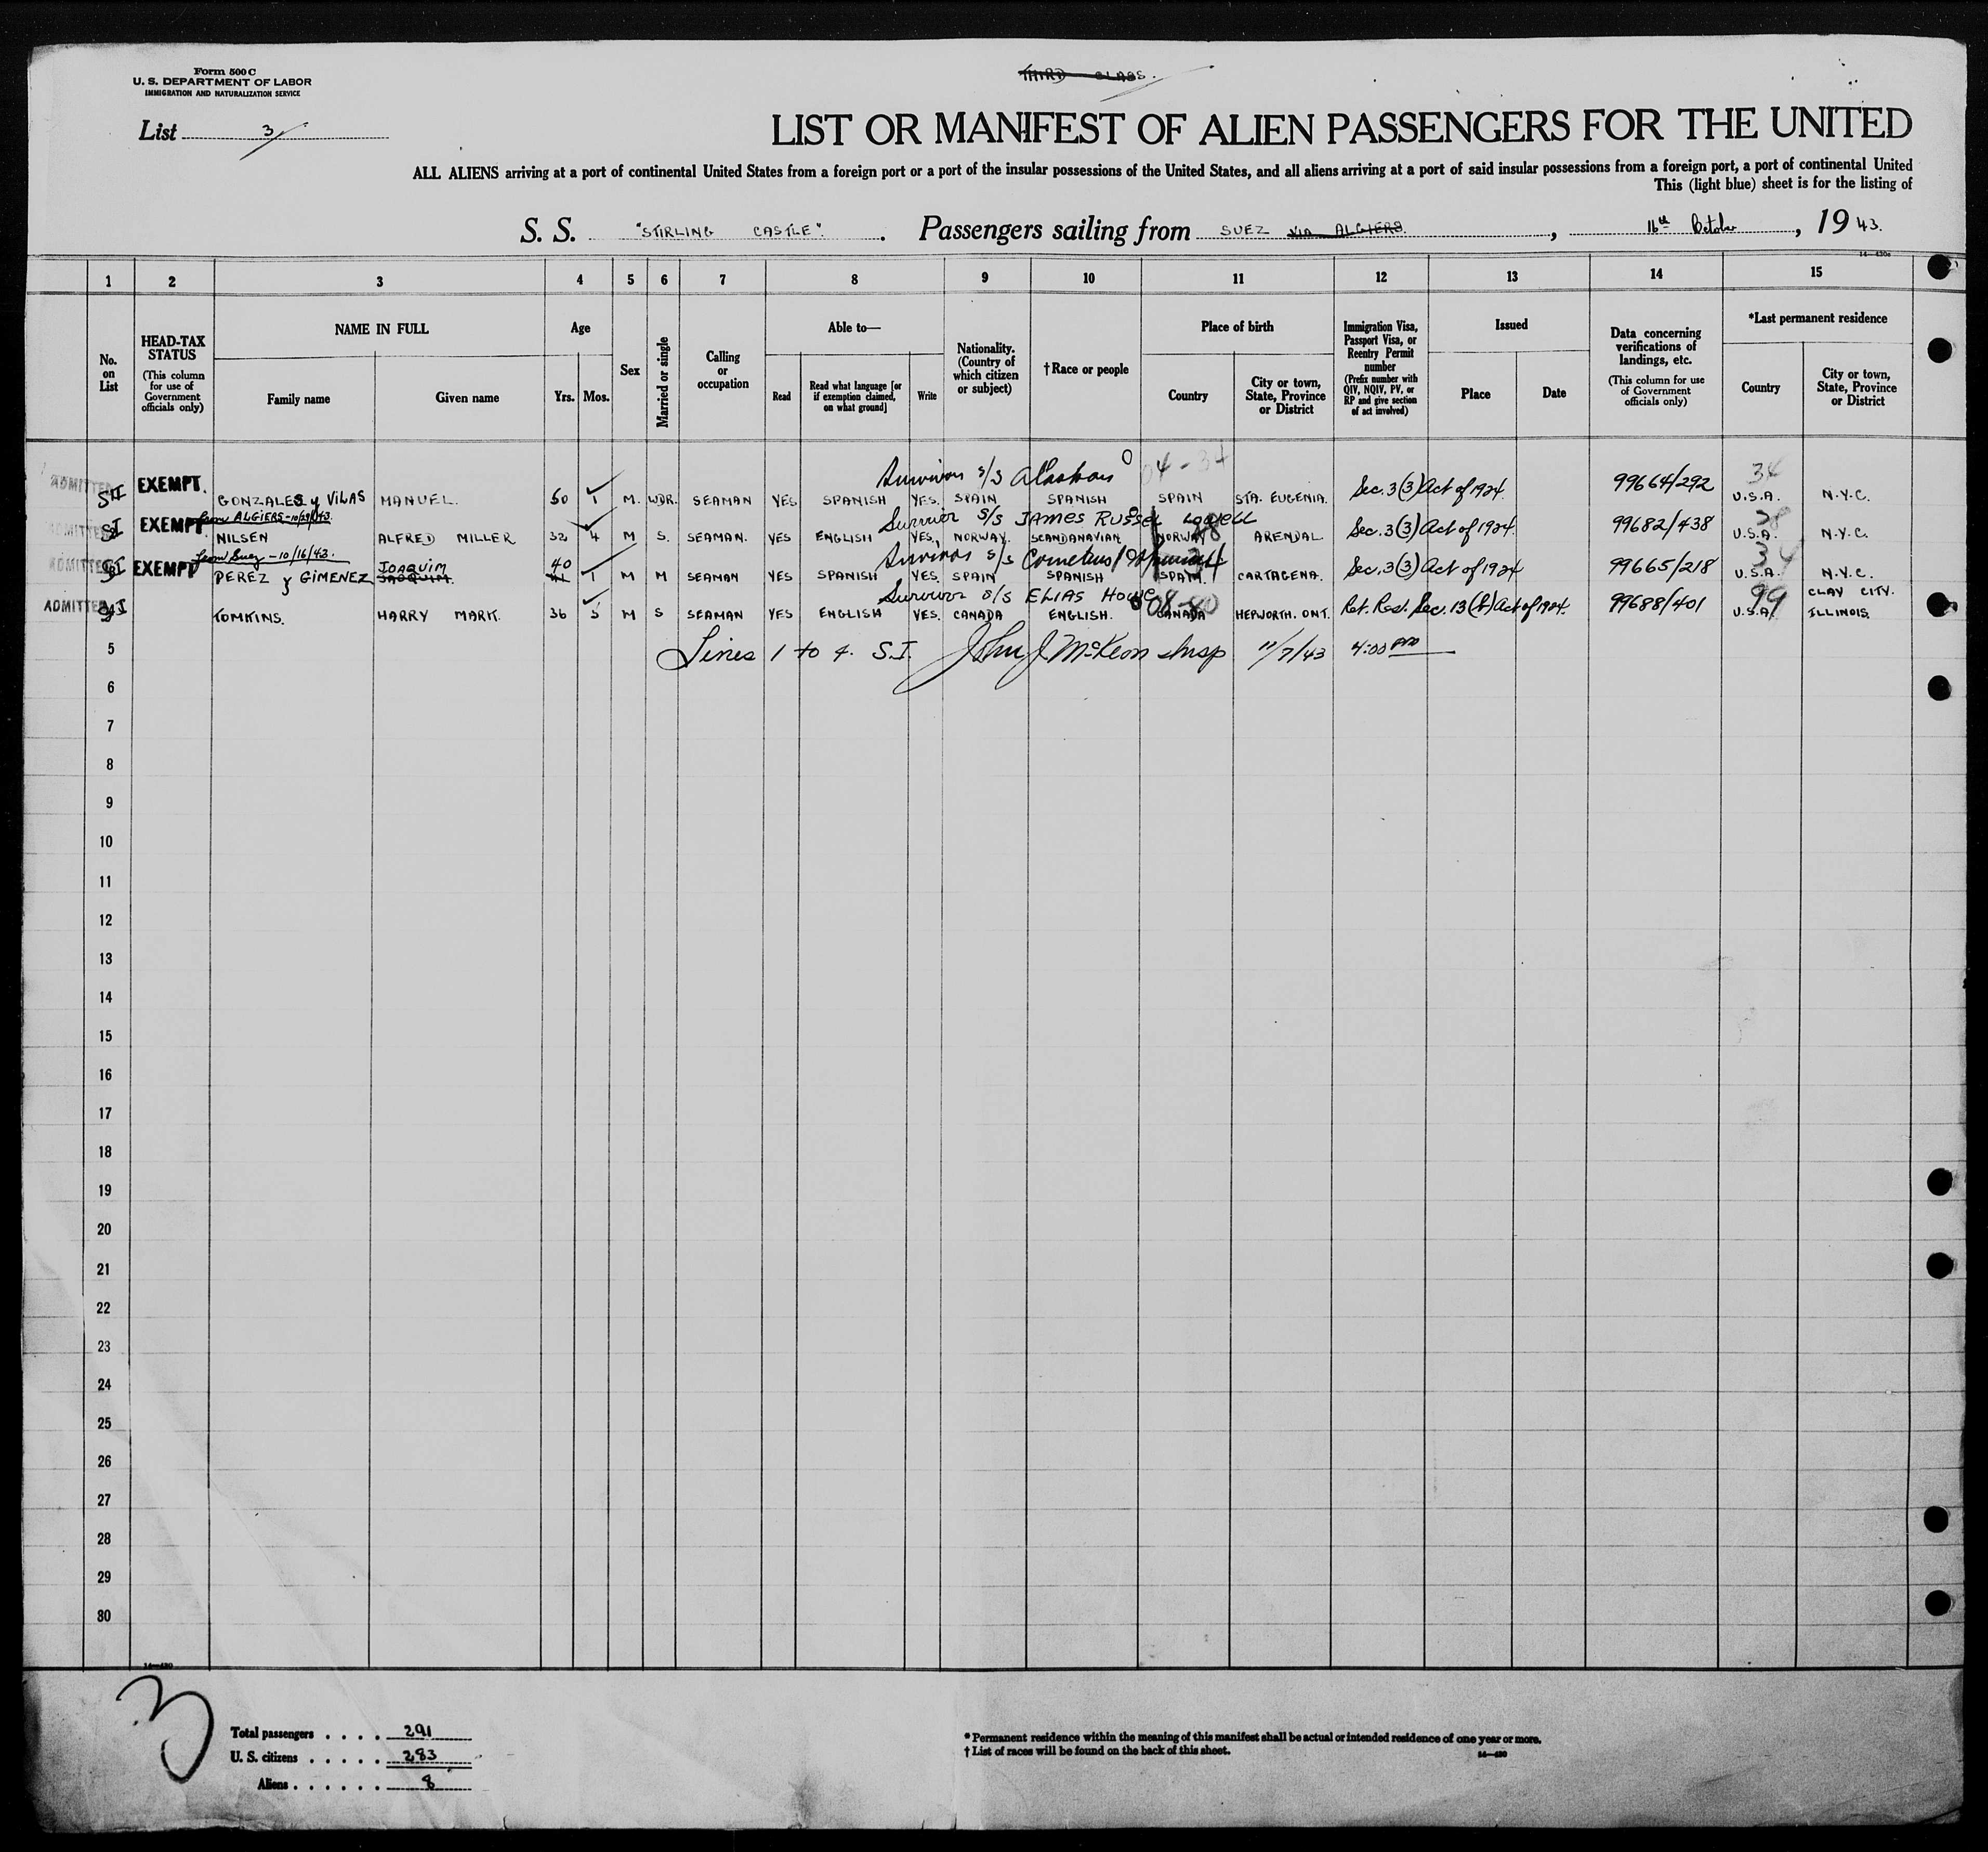 Form 500 C
U. S. DEPARTMENT OF LABOR
IMMIGRATION AND NATURALIZATION SERVICE
THIRD CLASS.
List 3
LIST OR MANIFEST OF ALIEN PASSENGERS FOR THE UNITED
ALL ALIENS arriving at a port of continental United States from a foreign port or a port of the insular possessions of the United States, and all aliens arriving at a port of said insular possessions from a foreign port, a port of continental United
This (light blue) sheet is for the listing of
S. S. "STIRLING CASTLE". Passengers sailing from SUEZ VIA ALGIERS, 16th October, 1943.
14—430a
1 2 3 4 5 6 7 8 9 10 11 12 13 14 15
No. on List
HEAD-TAX STATUS (This column for use of Government officials only)
NAME IN FULL
Family name
Given name
Age
Yrs. Mos.
Sex
Married or single
Calling or occupation
Able to—
Read
Read what language [or if exemption claimed, on what ground]
Write
Nationality. (Country of which citizen or subject)
†Race or people
Place of birth
Country
City or town, State, Province or District
Immigration Visa, Passport Visa, or Reentry Permit number (Prefix number with QIV, NQIV, PV, or RP and give section of act involved)
Issued
Place
Date
Data concerning verifications of landings, etc. (This column for use of Government officials only)
*Last permanent residence
Country
City or town, State, Province or District
Survivor S/S Alaskan 04-34
ADMITTED SI EXEMPT. GONZALES y VILAS MANUEL. 50 1 M. WDR. SEAMAN YES SPANISH YES. SPAIN SPANISH SPAIN STA. EUGENIA. Sec. 3(3) Act of 1924. 99664/292 34 U.S.A. N.Y.C.
from ALGIERS-10/29/43. Survivor S/S JAMES RUSSEL LOWELL
ADMITTED SI EXEMPT NILSEN ALFRED MILLER 32 4 M S. SEAMAN. YES ENGLISH YES, NORWAY. SCANDANAVIAN NORWAY ARENDAL Sec. 3(3) Act of 1924. 99682/438 28 U.S.A. N.Y.C.
from Suez-10/16/43. Survivor S/S Cornelius
ADMITTED SI EXEMPT PEREZ y GIMENEZ JOAQUIM 40 1 M M SEAMAN YES SPANISH YES. SPAIN SPANISH SPAIN. CARTAGENA. Sec. 3(3) Act of 1924 99665/218 34 U.S.A. N.Y.C.
Survivor S/S ELIAS HOWE 08-80
ADMITTED SI TOMKINS. HARRY MARK. 36 5 M S SEAMAN YES ENGLISH YES. CANADA ENGLISH. CANADA HEPWORTH. ONT. Ret. Res. Sec. 13(b) Act of 1924. 99688/401 99 U.S.A. CLAY CITY. ILLINOIS.
5 Lines 1 to 4. S.I. John J. McKeon Insp 11/7/43 4:00 PM
6
7
8
9
10
11
12
13
14
15
16
17
18
19
20
21
22
23
24
25
26
27
28
29
30
14—430
3
Total passengers . . . . 291
U. S. citizens . . . . . 283
Aliens . . . . . . 8
* Permanent residence within the meaning of this manifest shall be actual or intended residence of one year or more.
† List of races will be found on the back of this sheet.
14—430